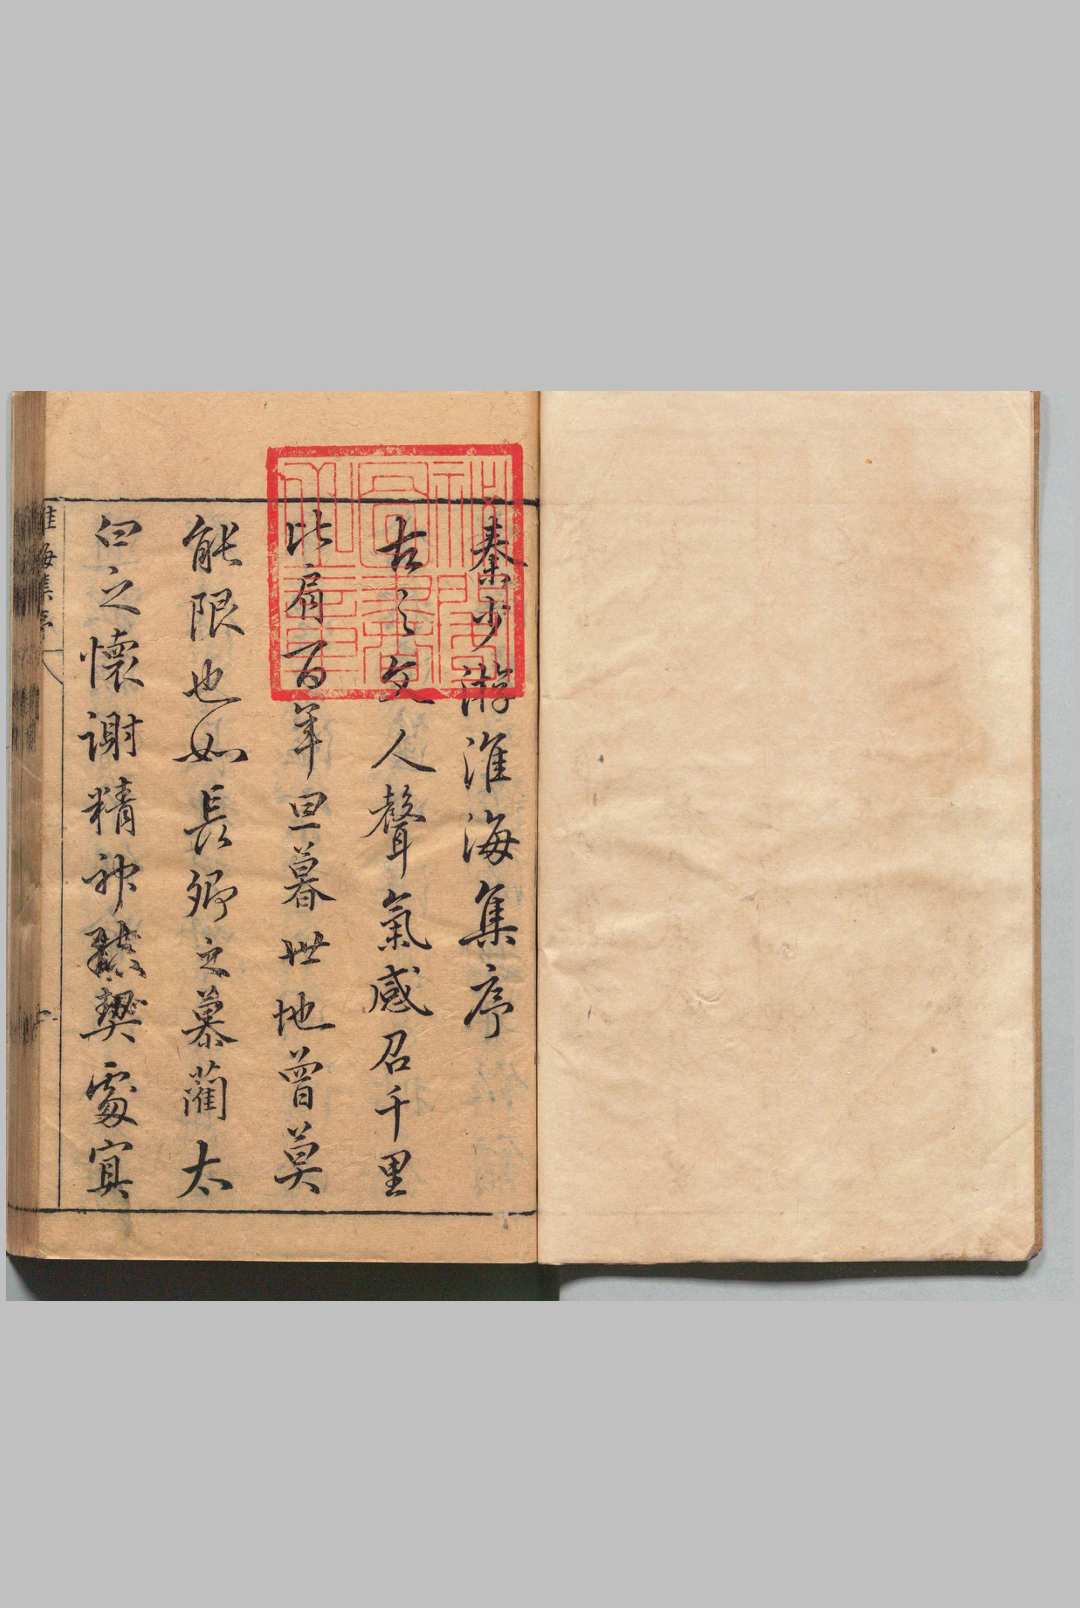 秦少游淮海集序
古之文人聲氣感召千里
比肩百年旦暮世地曾莫
能限也如長卿之慕藺太
白之懷謝精神契處寘
淮海集序